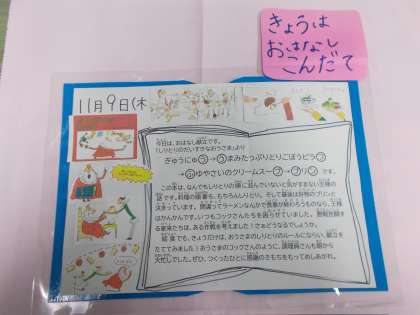 きょうは
おはなし
こんだて
11月9日(木
今日は、おはなし献立です。
「しりとりのだいすきなおうさま」より
ぎゅうにゅう→うまみたっぷりとりごぼうピラフ
→ふゆやさいのクリームスープ→プリン です。
この本は、なんでもしりとりの順に並んでいないと気がすまない王様の
話です。料理の順番も、もちろんしりとり。そして最後は好物のプリンと
決まっています。間違ってラーメンなんかで食事が終わろうものなら、王様
はかんかんです。いつもコックさんたちを困らせていました。
家来たちは、ある作戦を考えました!さぁどうなるでしょうか。
給食でも、きょうだけは、おうさまのしりとりのルールにならい、献立を
たててみました!おうさまのコックさんのように、調理員さんも朝から
大忙しでした。ぜひ、つくったひとに感謝のきもちをもってめしあがれ。